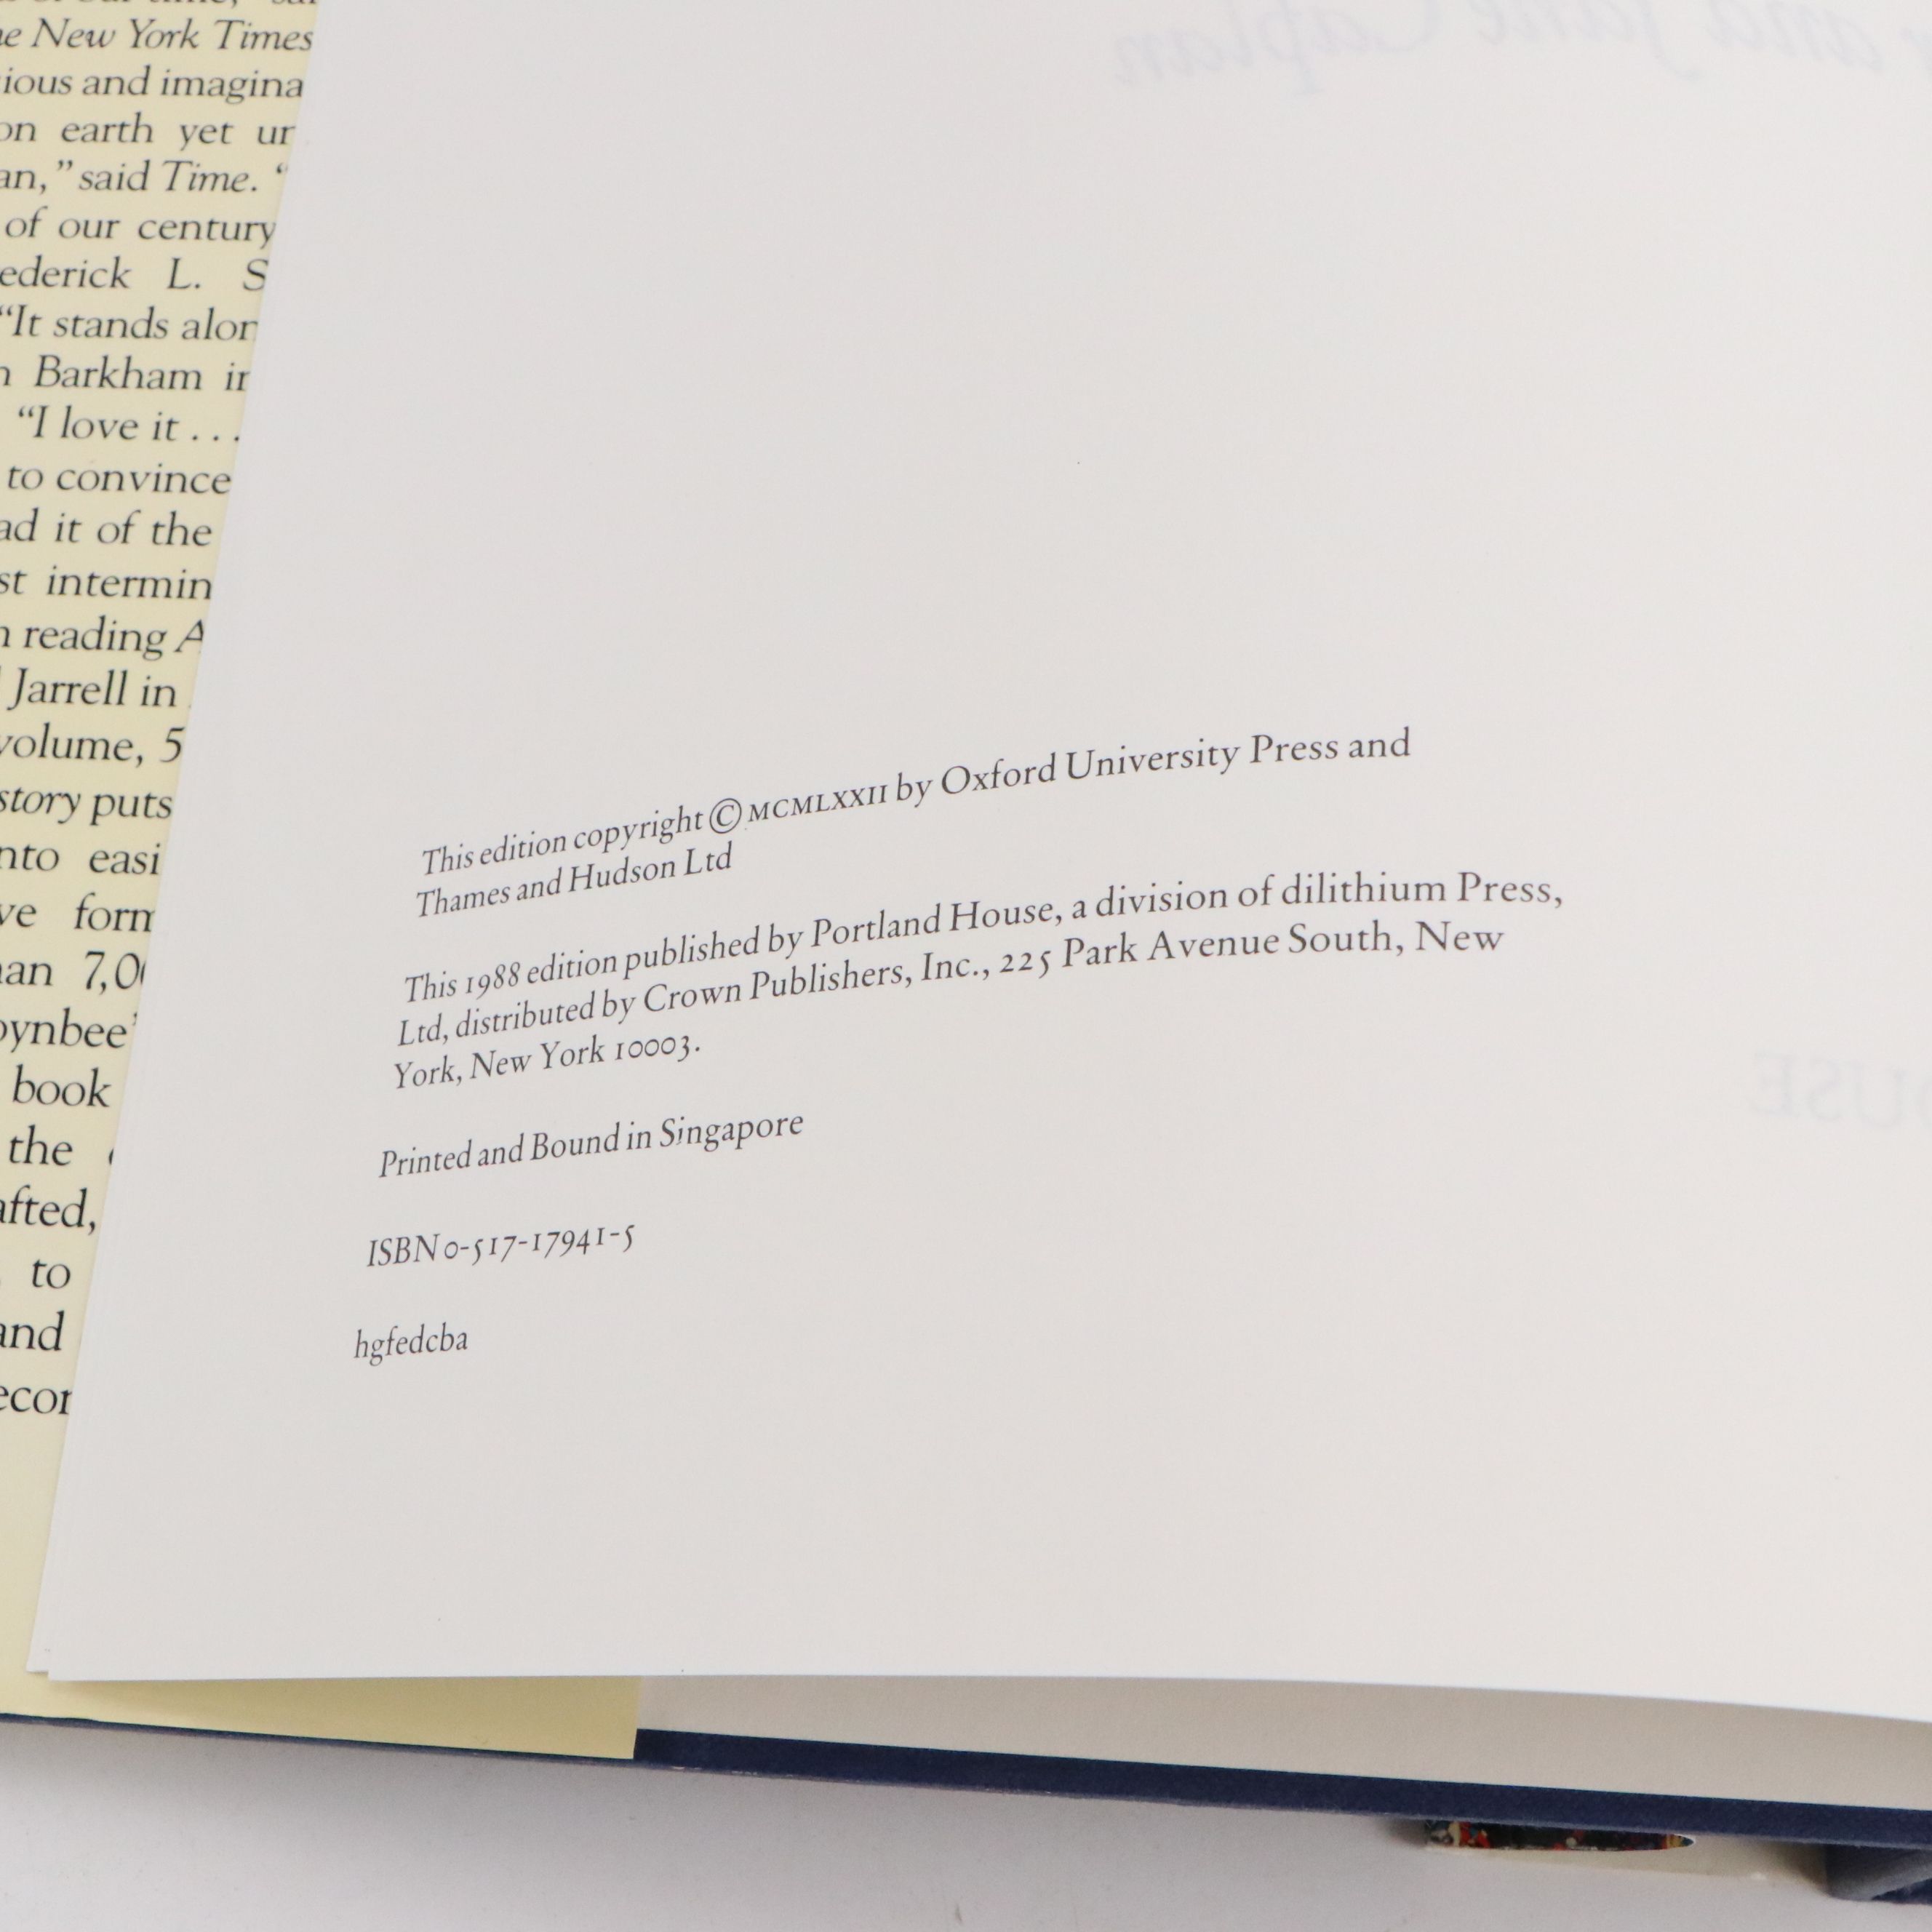 he New York Times
ious and imagina
on earth yet ur
an," said Time. "
of our century
ederick L. S
"It stands alon
n Barkham in
"I love it . . .
to convince
ad it of the
st intermin
n reading A
Jarrell in
volume, 5
story puts
nto easi
ve form
an 7,00
oynbee'
book
the
afted,
to
and
econ
and Jane Caplan
This edition copyright © MCMLXXII by Oxford University Press and
Thames and Hudson Ltd
This 1988 edition published by Portland House, a division of dilithium Press,
Ltd, distributed by Crown Publishers, Inc., 225 Park Avenue South, New
York, New York 10003.
Printed and Bound in Singapore
ISBN 0-517-17941-5
hgfedcba
OUSE